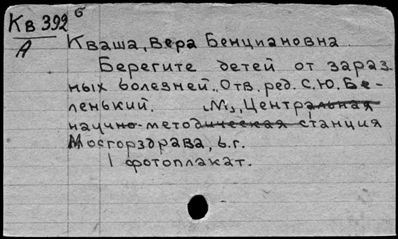 Кв 392 б
А
Кваша, Вера Бенциановна
Берегите детей от зараз-
ных болезней. Отв. ред. С.Ю. Бе-
ленький. М., Центральная
научно-методическая станция
Мосгорздрава, б.г.
1 фотоплакат.